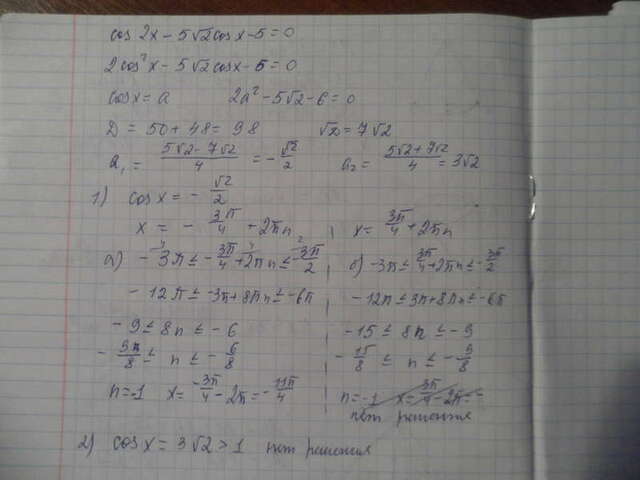 cos 2x - 5√2 cosx - 5 = 0
2cos²x - 5√2 cosx - 6 = 0
cosx = a   2a² - 5√2 - 6 = 0
D = 50 + 48 = 98   √D = 7√2
a₁ = (5√2 - 7√2)/4 = -√2/2   a₂ = (5√2 + 7√2)/4 = 3√2
1) cosx = -√2/2
x = -3π/4 + 2πn   x = 3π/4 + 2πn
а) -3π ≤ -3π/4 + 2πn ≤ -3π/2   б) -3π ≤ 3π/4 + 2πn ≤ -3π/2
-12π ≤ -3π + 8πn ≤ -6π   -12π ≤ 3π + 8πn ≤ -6π
-9 ≤ 8n ≤ -6   -15 ≤ 8n ≤ -9
-9π/8 ≤ n ≤ -6/8   -15/8 ≤ n ≤ -9/8
n = -1   x = -3π/4 - 2π = -11π/4   n = -1   x = 3π/4 - 2π =
нет решения
2) cosx = 3√2 > 1   нет решения